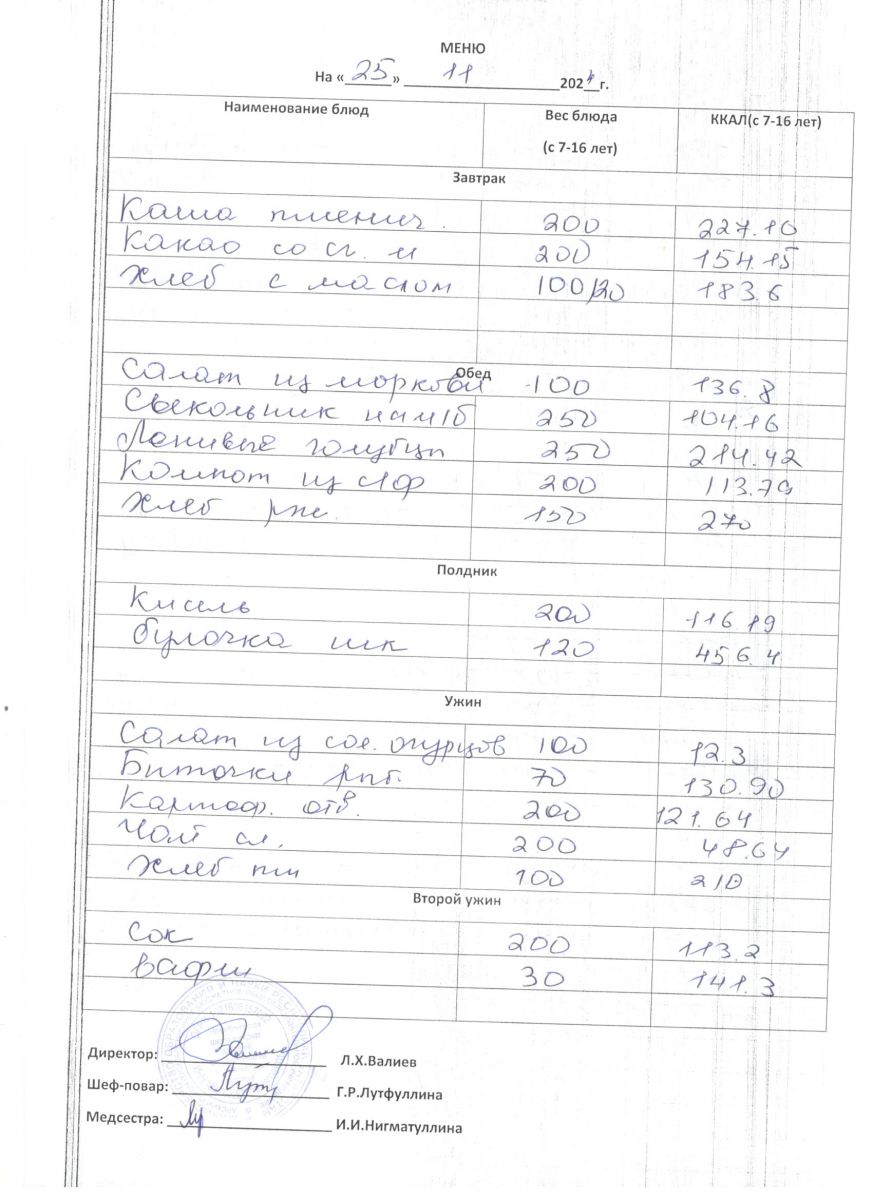 МЕНЮ
На « 25 » 11 2024 г.
Наименование блюд Вес блюда (с 7-16 лет) ККАЛ(с 7-16 лет)
Завтрак
Каша пшенич. 200 227.16
Какао со сг. м 200 154.15
Хлеб с маслом 100/20 183.6
Обед
Салат из моркови 100 136.8
Свекольник на м/б 250 104.16
Ленивые голубцы 250 214.42
Компот из с/ф 200 113.79
Хлеб рж. 150 270
Полдник
Кисель 200 116.19
Булочка шк 120 456.4
Ужин
Салат из сол. огурцов 100 12.3
Биточки рыб. 70 130.90
Картоф. отв. 200 121.64
Чай сл. 200 48.64
Хлеб пш 100 210
Второй ужин
Сок 200 113.2
Вафли 30 141.3
Директор: Л.Х.Валиев
Шеф-повар: Г.Р.Лутфуллина
Медсестра: И.И.Нигматуллина